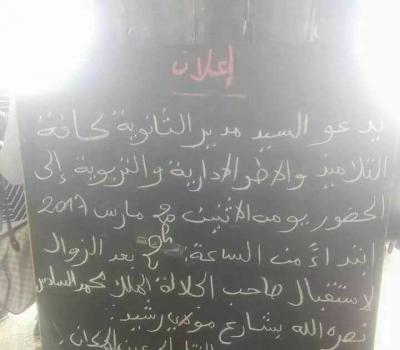 إعلان
يدعو السيد مدير الثانوية كافة
التلاميذ والاطر الادارية والتربوية إلى
الحضور يومه الاثنين مارس 2017
ابتداءً من الساعة 2h بعد الزوال
لاستقبال صاحب الجلالة الملك محمد السادس
نصره الله بشارع مولاي رشيد.